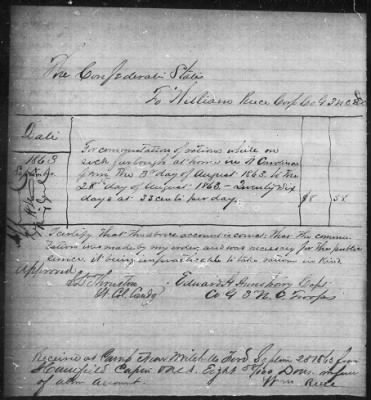 The Confederate States
To William Ruce Corp Co G 3 N.C.
Date
1863
For commutation of rations while on
sick furlough at home in N Carolina
from the 3d day of August 1863 to the
28th day of August 1863 - Twenty Six
days at 33 cents per day. $8 58
I certify that the above account is correct that the commu
tation was made by my order, and was necessary for the public
service it being impracticable to take rations in kind
Approved
Lt Col Comdg
Edward H Capt
Co G 3 N. C. Troops
Received at Camp near Ford 28 1863 from
Capt Eight 58/100 Dols. in full
of above amount. Wm Ruce